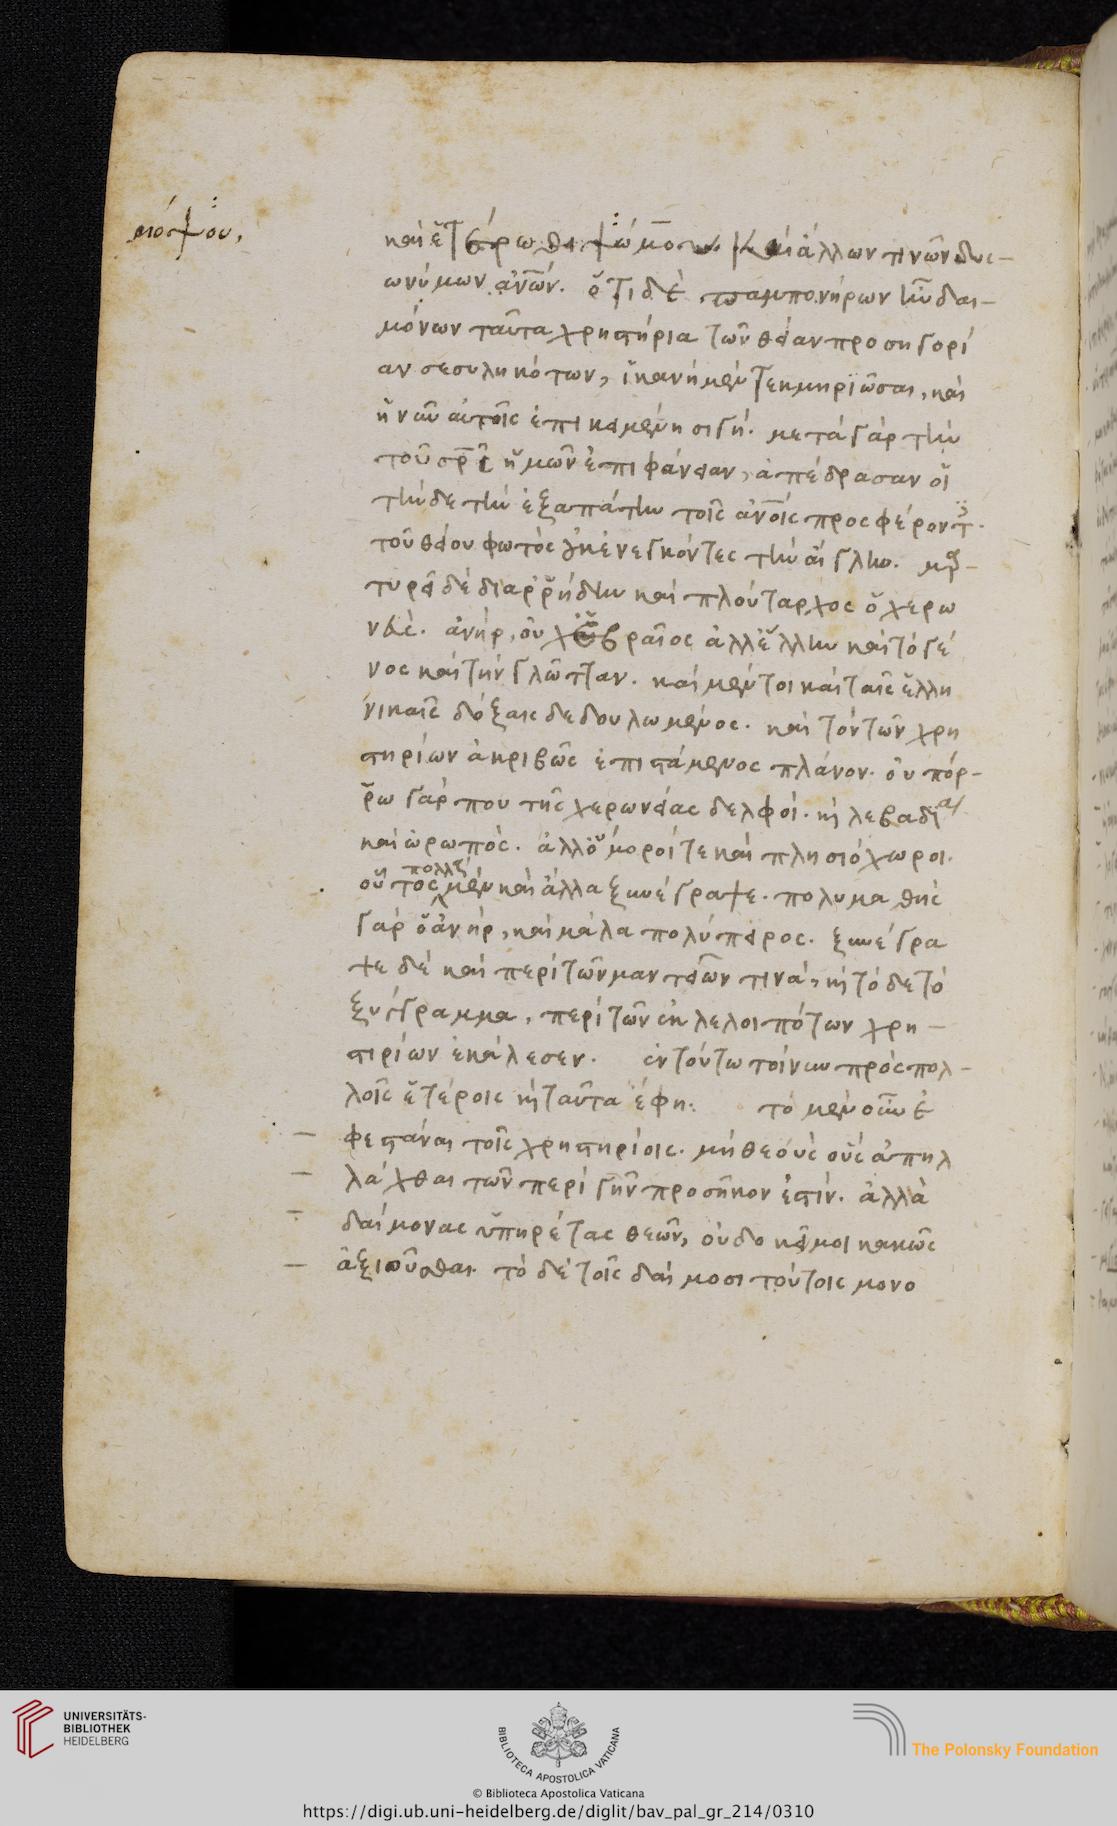 καὶ ἑτέρωθι καὶ ἄλλων τινῶν δυσ-
ωνύμων ἀνῶν. ὅτι δὲ παμπονήρων ἦν δαι-
μόνων ταῦτα χρηστήρια τὼν θείαν προσηγορί
αν σεσυληκότων, ἱκανὴ μὲν τεκμηριῶσαι, καὶ
ἡ νῦν αὐτοῖς ἐπικειμένη σιγή. μετὰ γὰρ τὴν
τοῦ σρς ἡμῶν ἐπιφάνειαν, ἀπέδρασαν οἱ
τήνδε τὴν ἐξαπάτην τοῖς ἀνοις προσφέροντ.
τοῦ θείου φωτὸς οὐκ ἐνεγκόντες τὴν αἴγλην. μαρ-
τυρεῖ δὲ διαρρήδην καὶ πλούταρχος ὁ χερω
νεὺς. ἀνὴρ, οὐχ ἑβραῖος ἀλλ' ἕλλην καὶ τὸ γέ
νος καὶ τὴν γλῶτταν. καὶ μέντοι καὶ ταῖς ἑλλη
νικαῖς δόξαις δεδουλωμένος. καὶ τὸν τῶν χρη
στηρίων ἀκριβῶς ἐπιστάμενος πλάνον. οὐ πόρ-
ρω γάρ που τῆς χερωνείας δελφοί. κὶ λεβαδία
καὶ ὠρωπὸς. ἀλλ' ὅμοροί τε καὶ πλησιόχωροι.
οὗτος πολλὰ μὲν καὶ ἄλλα ξυνέγραψε. πολυμαθὴς
γὰρ ὁ ἀνὴρ, καὶ μάλα πολύπειρος. ξυνέγρα
ψε δὲ καὶ περὶ τῶν μαντείων τινά, κὶ τόδε τὸ
ξύγγραμμα, περὶ τῶν ἐκλελοιπότων χρη-
στιρίων ἐκάλεσεν. ἐν τούτω τοίνυν πρὸς πολ-
λοῖς ἑτέροις κὶ ταῦτα ἔφη: τὸ μὲν οὖν ἐ
φεστάναι τοῖς χρηστηρίοις. μὴ θεοὺς οὓς ἀπηλ
λάχθαι τῶν περὶ γῆν προσῆκον ἐστίν. ἀλλὰ
δαίμονας ὑπηρέτας θεῶν, οὐ δοκεῖ μοι κακῶς
ἀξιοῦσθαι. τὸ δὲ τοῖς δαίμοσι τούτοις μονο
UNIVERSITÄTS-
BIBLIOTHEK
HEIDELBERG
BIBLIOTECA APOSTOLICA VATICANA
The Polonsky Foundation
© Biblioteca Apostolica Vaticana
https://digi.ub.uni-heidelberg.de/diglit/bav_pal_gr_214/0310